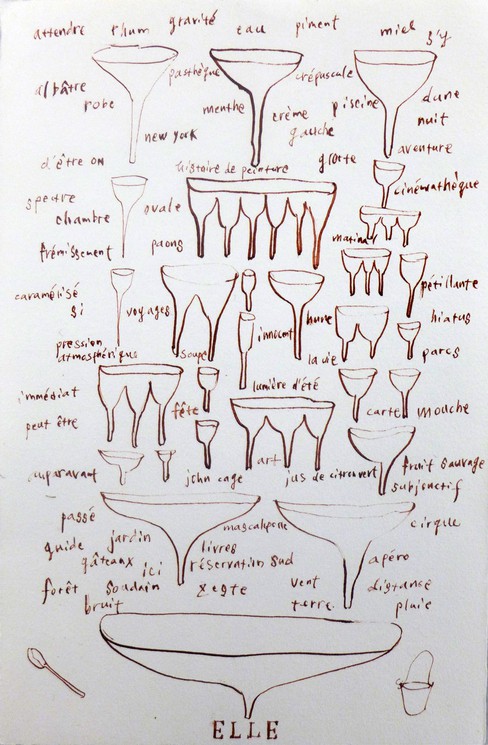 attendre rhum gravité eau piment miel
albâtre pasthèque crépuscule
robe menthe crème piscine dune
gauche nuit
new york
d'être on histoire de peinture grotte aventure
cinémathèque
spectre ovale
chambre
frémissement paons matinal
caramélisé voyages pétillante
si innocent hiatus
pression
atmosphérique soupe la vie parcs
immédiat lumière d'été
fête carte mouche
peut être
auparavant john cage art jus de citron vert fruit sauvage
subjonctif
passé mascalipone cirque
guide jardin livres
gâteaux ici réservation sud apéro
forêt soudain zeste vent distance
bruit terre pluie
ELLE